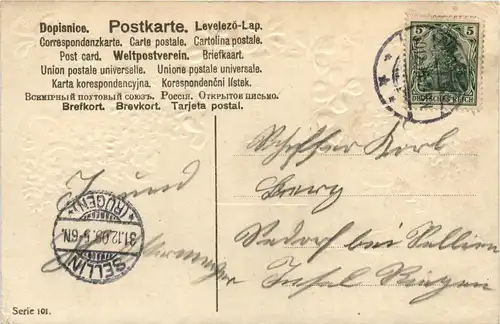 Dopisnice. Postkarte. Levelező-Lap.
Correspondenzkarte. Carte postale. Cartolina postale.
Post card. Weltpostverein. Briefkaart.
Union postale universelle. Unione postale universale.
Karta korespondencyjna. Korespondenční lístek.
Всемірный почтовый союзъ. Россія. Открытое письмо.
Brefkort. Brevkort. Tarjeta postal.
5 5
DEUTSCHES REICH
Schiffer Karl
Berg
Sedorf bei Sellin
Insel Rügen
J. und
SELLIN
*(RÜGEN)*
31.12.05. 5-6N.
Serie 101.